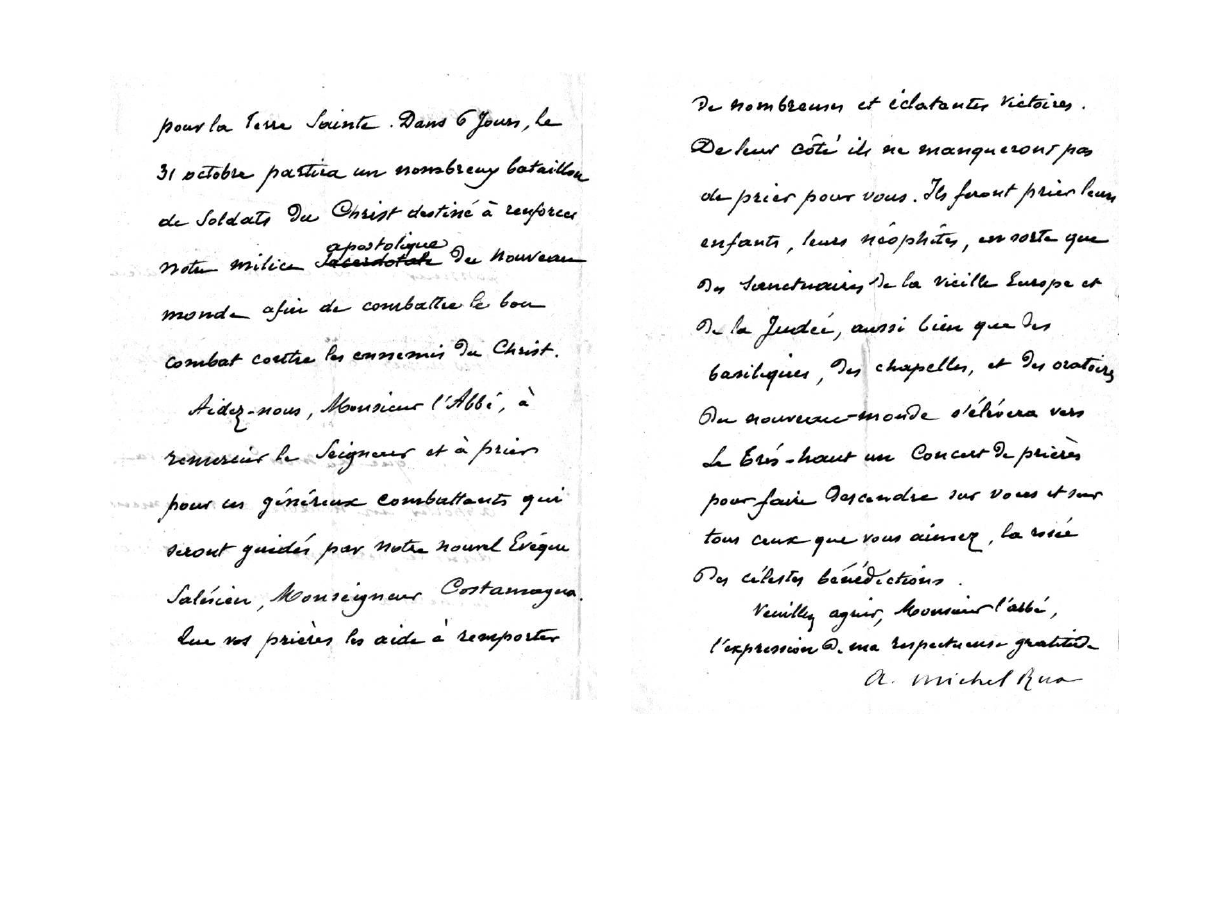 pour la Terre Sainte. Dans 6 Jours, le
31 octobre partira un nombreux bataillon
de Soldats du Christ destiné à renforcer
apostolique
notre milice sacerdotale du nouveau
monde afin de combattre le bon
combat contre les ennemis du Christ.
Aidez-nous, Monsieur l'Abbé, à
remercier le Seigneur et à prier
pour ces généreux combattants qui
seront guidés par notre nouvel Evêque
Salésien, Monseigneur Costamagna.
Que vos prières les aide à remporter
de nombreuses et éclatantes victoires.
De leur côté ils ne manqueront pas
de prier pour vous. Ils feront prier leurs
enfants, leurs néophites, en sorte que
des Sanctuaires de la vieille Europe et
de la Judée, aussi bien que des
basiliques, des chapelles, et des oratoires
du nouveau-monde s'élèvera vers
le Très-haut un Concert de prières
pour faire descendre sur vous et sur
tous ceux que vous aimez, la rosée
des célestes bénédictions.
Veuillez agréer, Monsieur l'abbé,
l'expression de ma respectueuse gratitude
a. Michel Rua